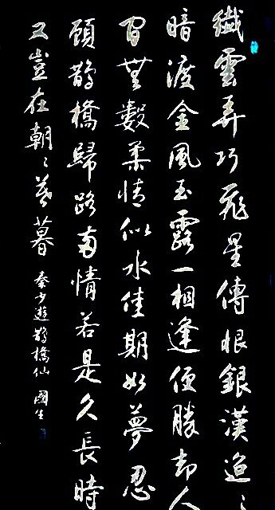 纖雲弄巧飛星傳恨銀漢迢〻
暗渡金風玉露一相逢便勝却人
間無數柔情似水佳期如夢忍
顧鵲橋歸路兩情若是久長時
又豈在朝〻暮暮 秦少遊鵲橋仙 國生